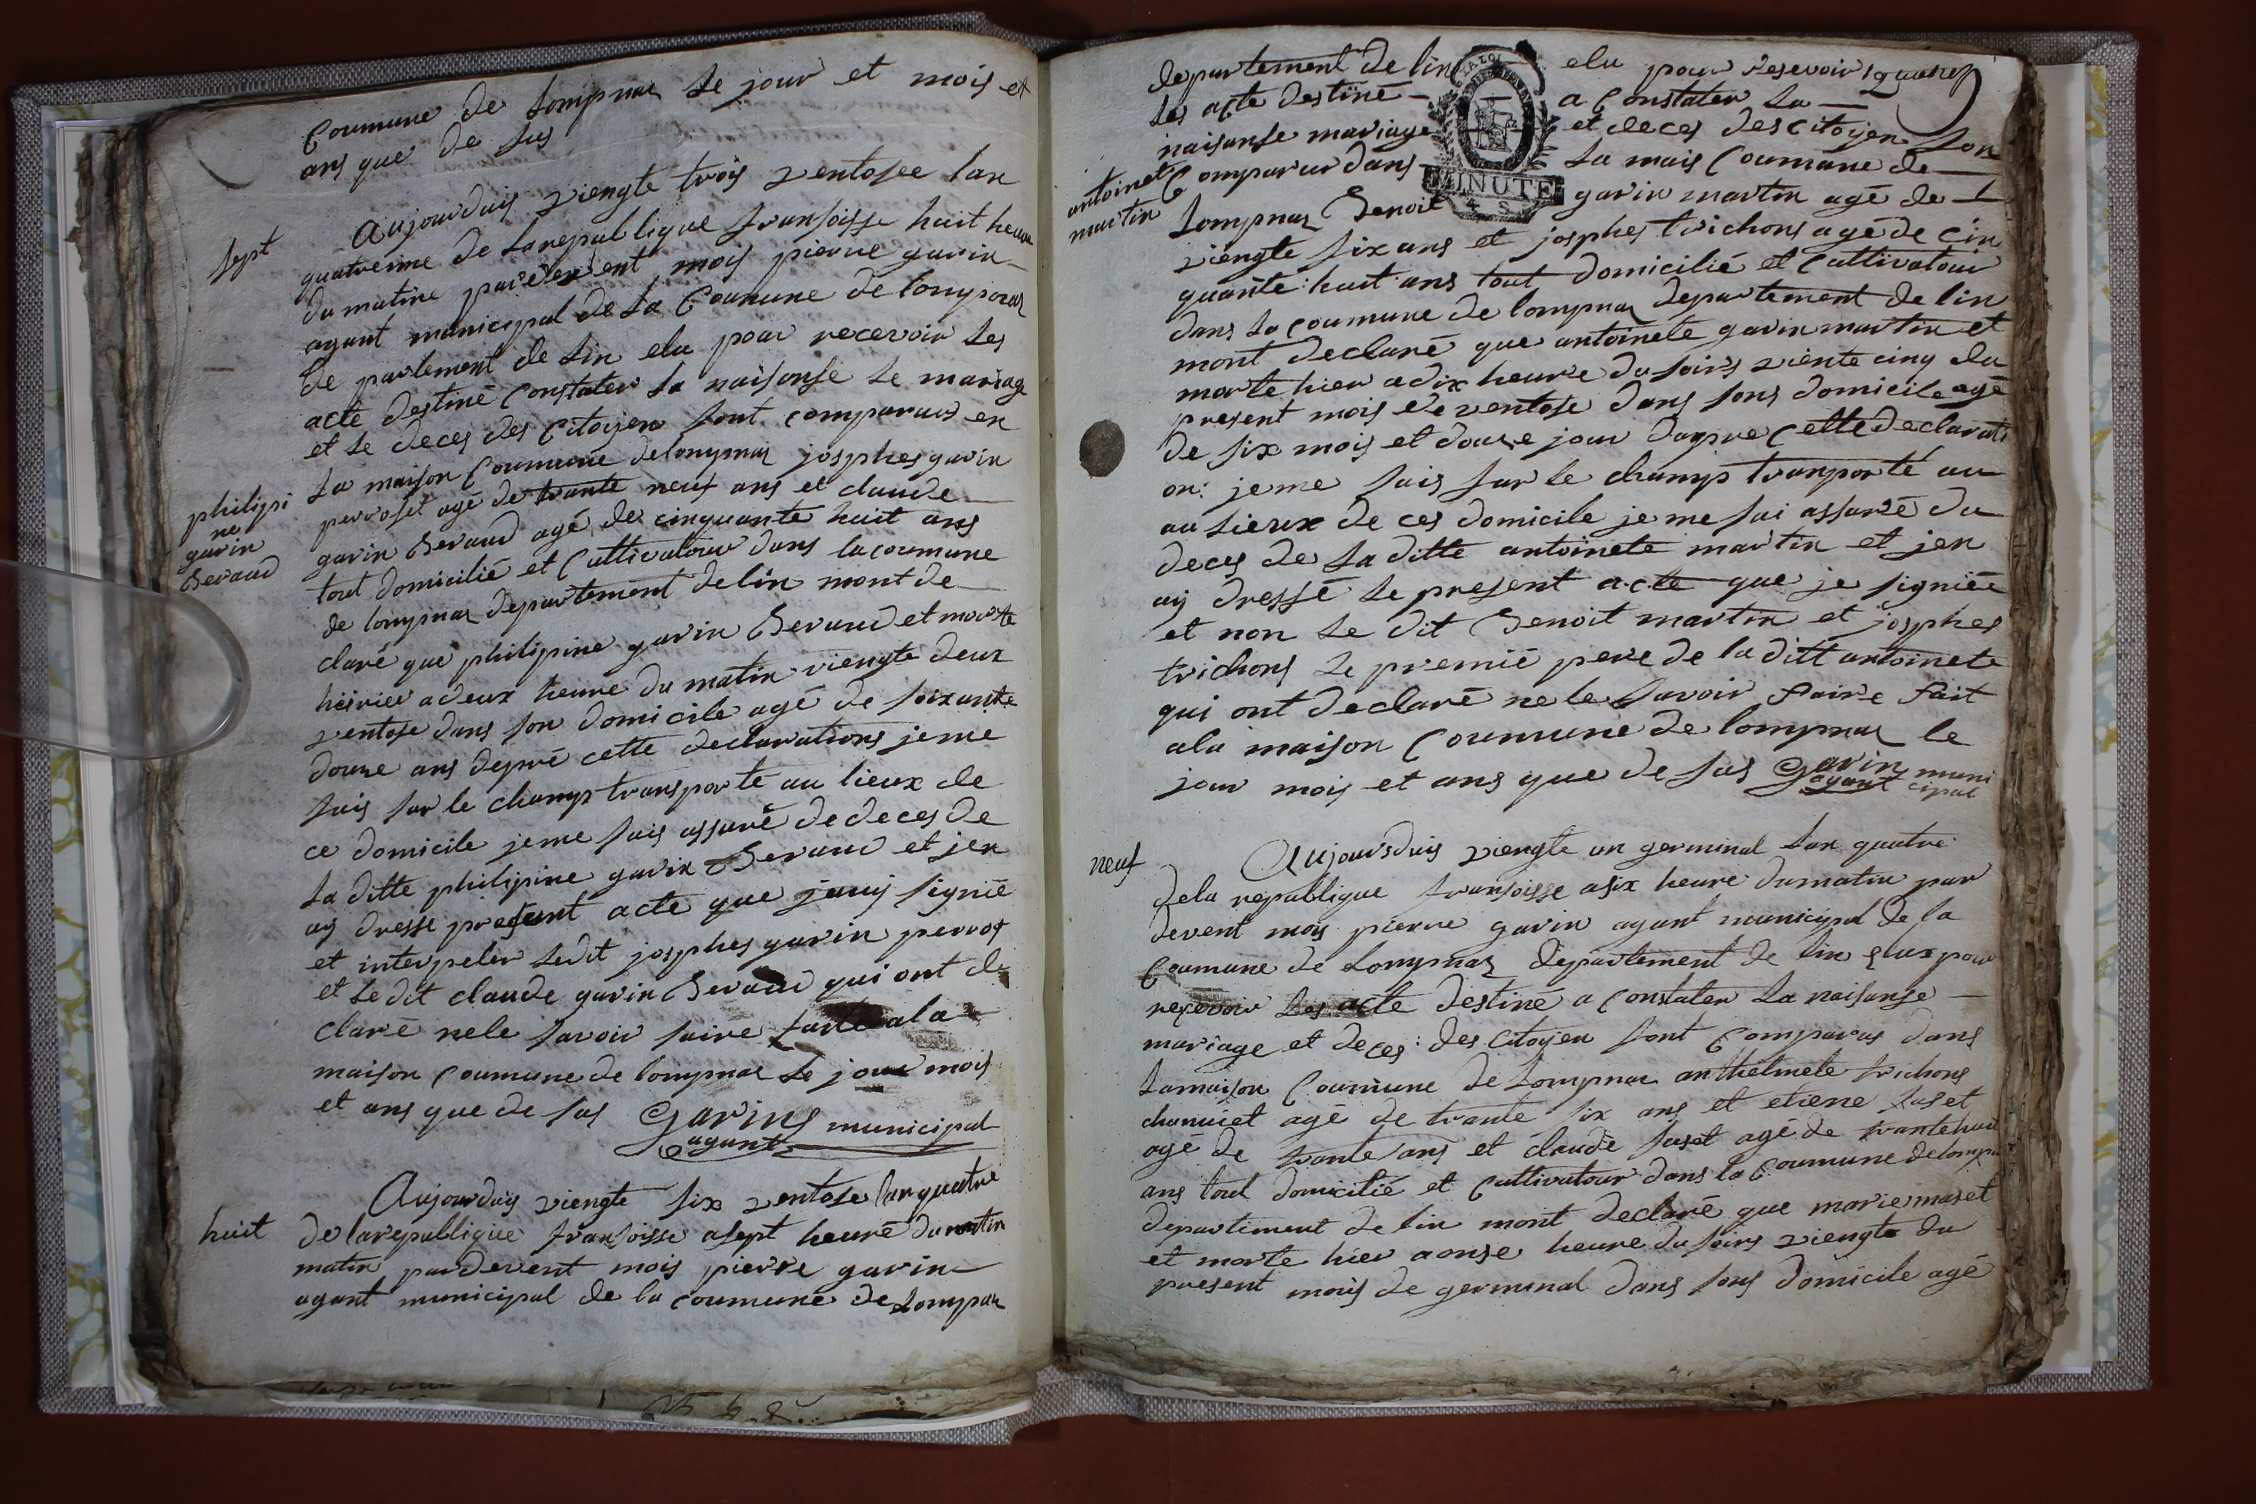 Coumune de Lompnaz le jour et mois et
ans que de sus
sept
aujourduis viengte trois ventosee lan
quatreime de la republique fransoisse huit heure
du matine pardevent mois pierre gavin
agant municipal de la Coumune de Lompnaz
de partement de Lin elu pour recevoir les
acte destiné Constater la naisonse le mariage
et le deces des Citoyen sont comparus en
la maison Coumune delompnaz josphes gavin
philipi
ne
gavin
Beraud
perroset agé de trante neuf ans et claude
gavin Beraud agé de cinquante huit ans
tout domicilié et Cultivatour dans lacoumune
de lompnaz departement de lin mont de
claré que philipine gavin Beraud et morte
hiervier a deux heure du matin viengte deux
ventose dans son domicile agé de soixante
douze ans depré cette declarations jeme
suis sur le champs transporte au lieux de
ce domicile jeme suis assuré de deces de
la ditte philipine gavin Beraud et jen
ay dresse present acte que jenuj signié
et interpeler ledit josphes gavin perrot
et le dit claude gavin Beraud qui ont de
claré nele savoir faire faite ala
maison Coumune de lompnaz le jour mois
et ans que de sus Gavins municipal
agant
huit
Aujourduis viengte six ventose lan quatre
de larepubligue fransoisse asept heure du matin
matin pardevent mois pierre gavin
agant municipal de la coumune de Lompnaz
departement de lin elu pour resevoir
les acte destiné a Constater la
naisanse mariage et deces des citoyen son
antoinete
martin
Comparur dans la mais Coumune de
Lompnaz Benoit gavin martin agé de
MINUTE
4 S
viengte six ans et josphes trichons agé de cin
quante huit ans tout domicilié et Cultivatour
dans la coumune de lompnaz departement de lin
mont declaré que antoinete gavin martin et
morte hier a dix heure du soirs viente cinq du
present mois de ventose dans sons domicile agé
de six mois et douze jour dapre cette declarati
on: jeme suis sur le champs tranporté au
au lieux de ces domicile je me sui assuré du
deces de la ditte antoinete martin et jen
ay dressé le present acte que je signiée
et non le dit Benoit martin et josphes
trichons le premié pere de la ditt antoinete
qui ont declaré nele savoir faire fait
ala maison Coumune de lompnaz le
jour mois et ans que de sus Gavin muni
agant cipal
neuf
Aujoursduis viengte un germinal Lan quatre
dela republique fransoisse asix heure dumatin par
devent mois pierre gavin agant municipal de la
Coumune de Lompnaz departement de lin elux pour
recevoir les acte destiné a Constater la naisanse
mariage et deces: des Citoyen sont Comparus dans
lamaison Coumune de Lompnaz anthelmele trichons
agé de trante six ans et etiene
agé de trante ans et claude agé de trantehuit
ans tout domicilié et Cultivatour dans la Coumune delompnaz
departement de lin mont declaré que marie maset
et morte hier aonse heure du soirs viengte du
present mois de germinal dans sons domicile agé